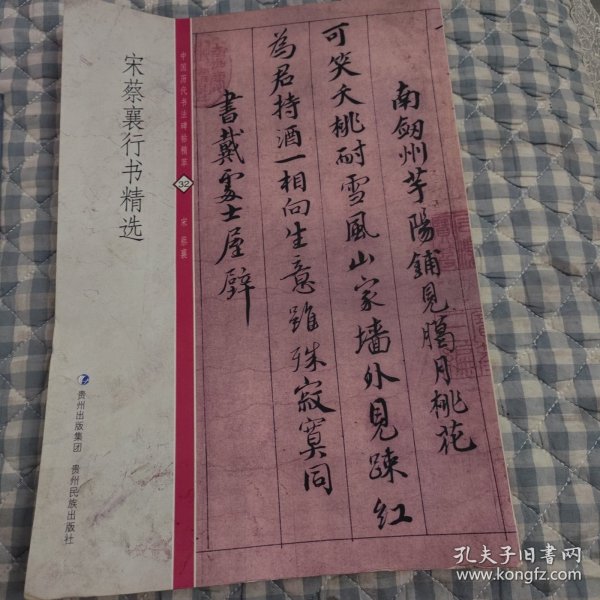 宋蔡襄行书精选
贵州出版集团 贵州民族出版社
中国历代书法碑帖精萃
32
宋 蔡襄
南劒州芋陽鋪見臈月桃花
可笑夭桃耐雪風山家墻外見踈紅
為君持酒一相向生意雖殊寂寞同
書戴處士屋壁
孔夫子旧书网
www.kongfz.com